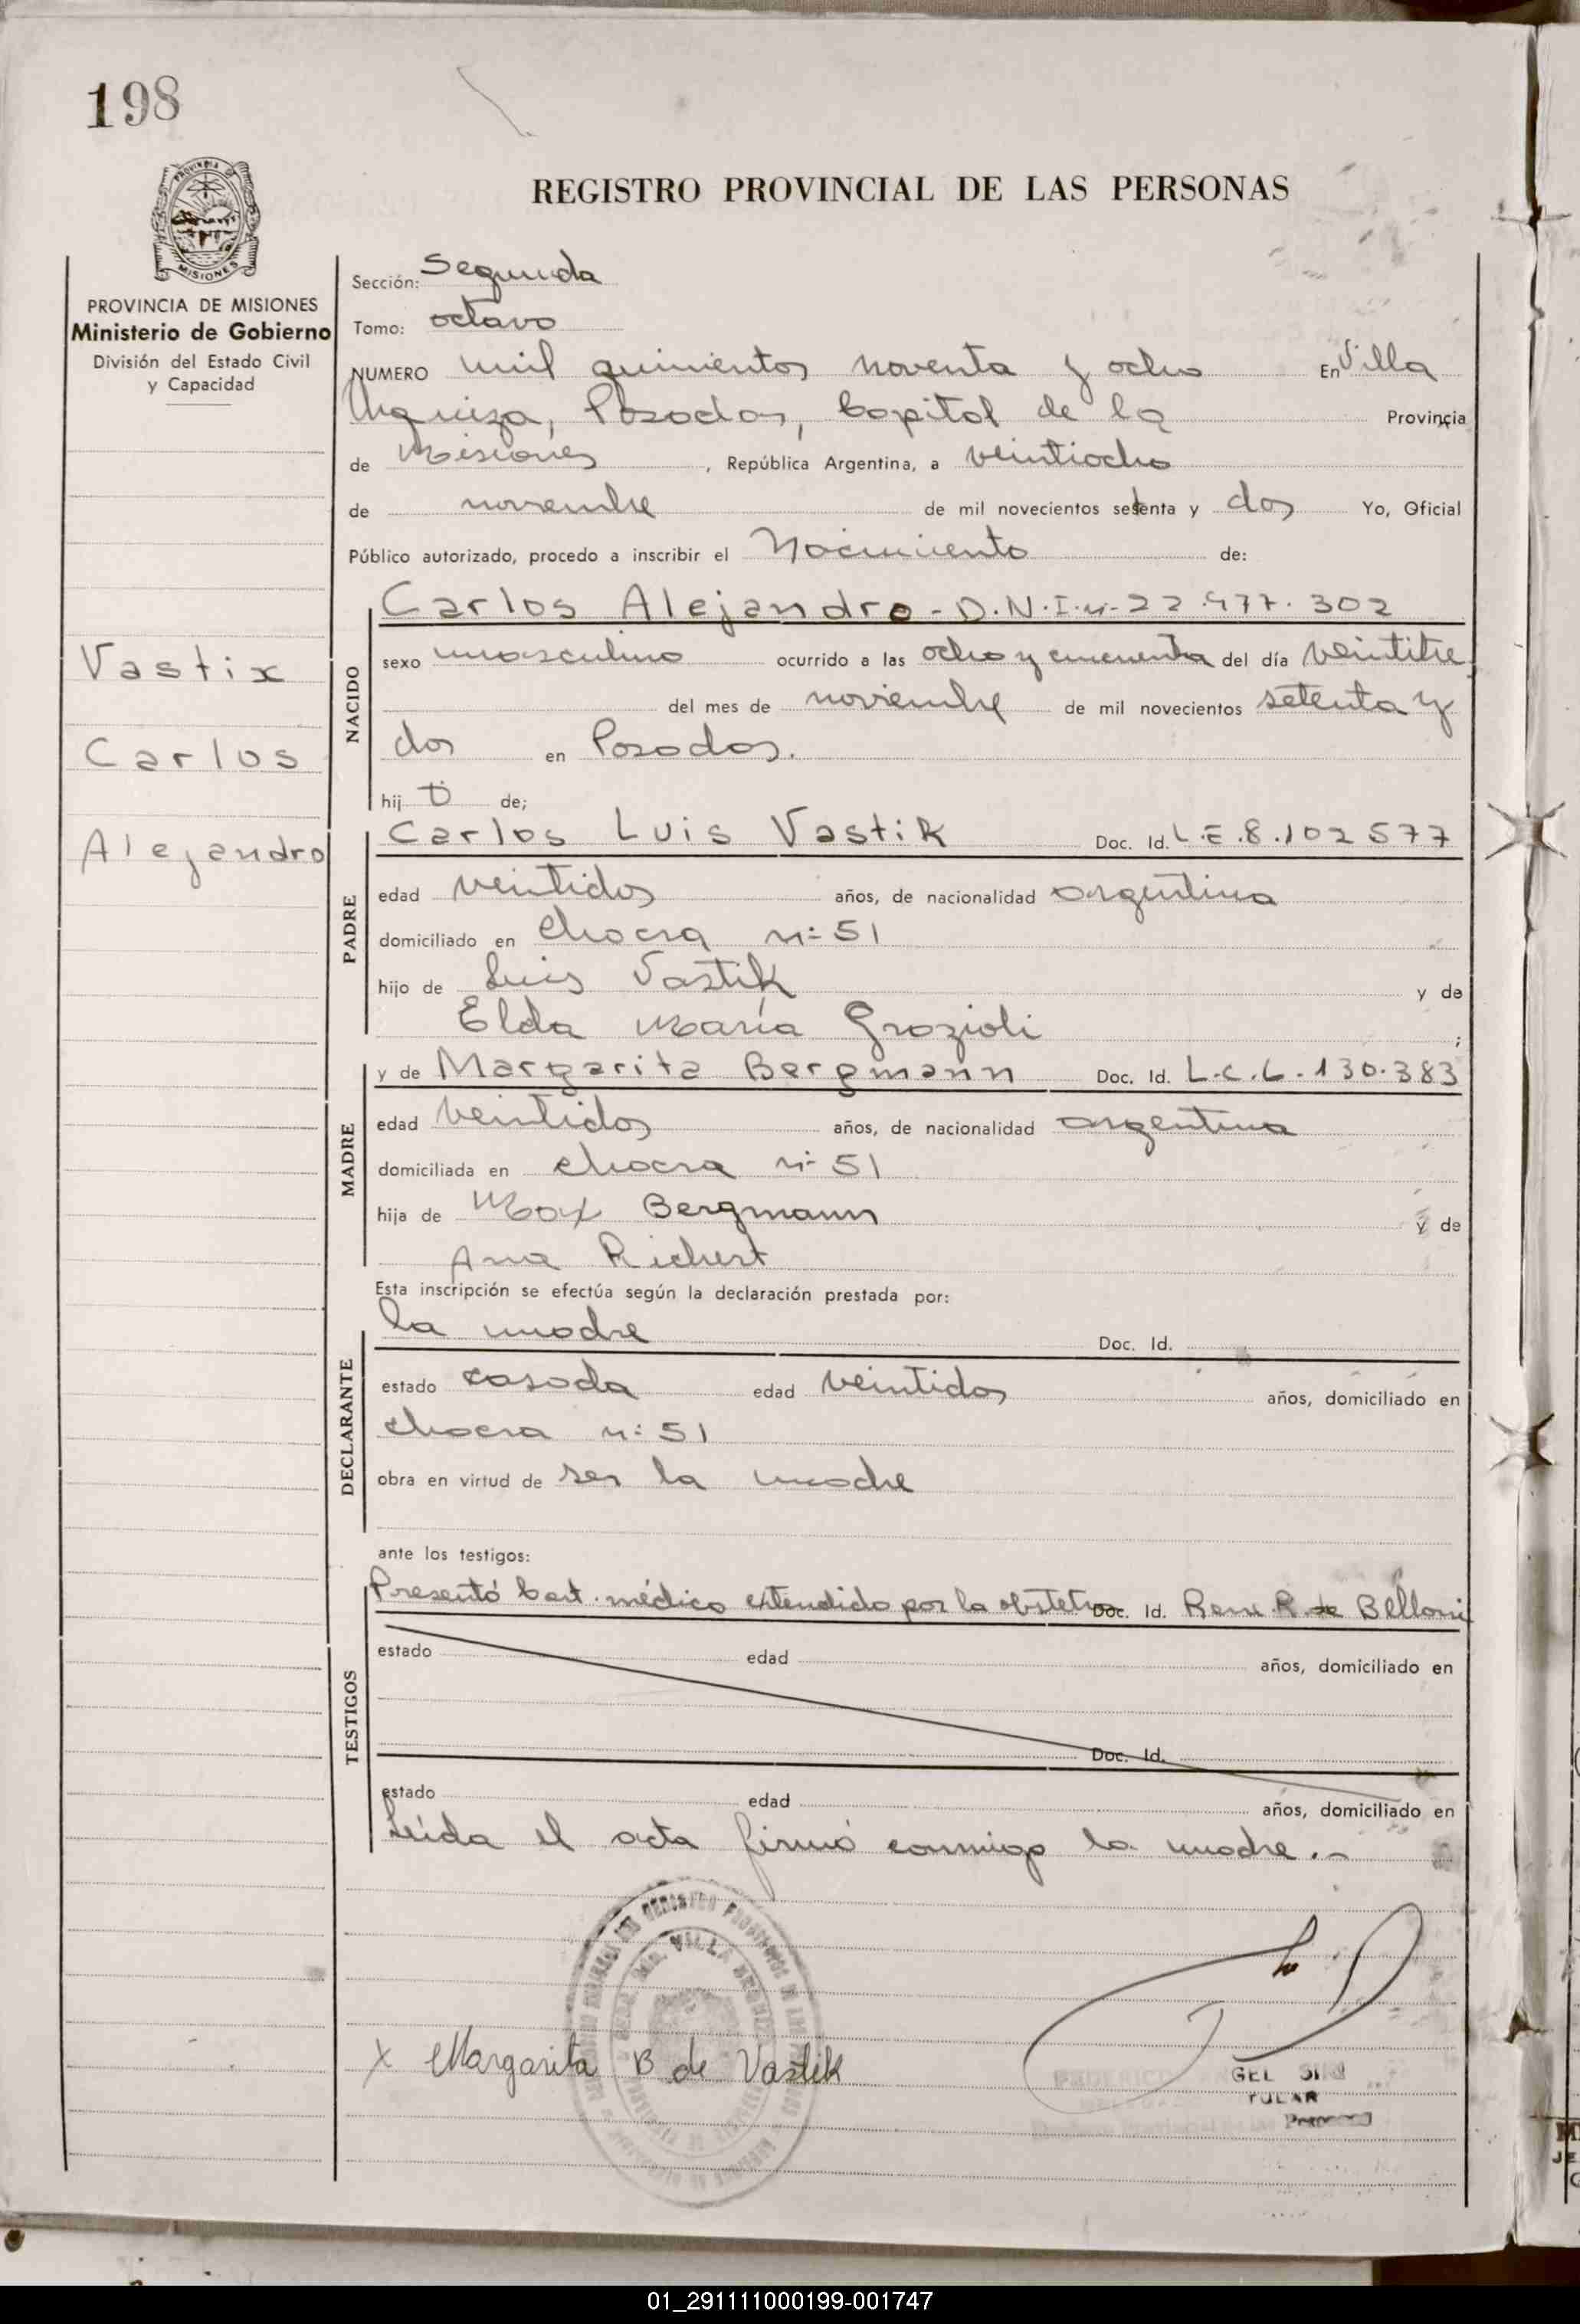 198
PROVINCIA DE MISIONES
REGISTRO PROVINCIAL DE LAS PERSONAS
PROVINCIA DE MISIONES
Ministerio de Gobierno
División del Estado Civil
y Capacidad
Vastix
Carlos
Alejandro
Sección: Segunda
Tomo: octavo
NUMERO mil quinientos noventa y ocho En Villa
Urquiza, Posadas, Capital de la Provincia
de Misiones, República Argentina, a veintiocho
de noviembre de mil novecientos setenta y dos Yo, Oficial
Público autorizado, procedo a inscribir el Nacimiento de:
NACIDO
Carlos Alejandro - D.N.I. n- 22.477.302
sexo masculino ocurrido a las ocho y cincuenta del día veintitre
del mes de noviembre de mil novecientos setenta y
dos en Posadas.
hij o de;
PADRE
Carlos Luis Vastik Doc. Id. L.E. 8.102577
edad veintidos años, de nacionalidad argentina
domiciliado en chacra n: 51
hijo de Luis Vastik y de
Elda María Grazioli ;
MADRE
y de Margarita Bergmann Doc. Id. L.C. 6.130.383
edad veintidos años, de nacionalidad argentina
domiciliada en chacra n- 51
hija de Max Bergmann y de
Ana Richert
Esta inscripción se efectúa según la declaración prestada por:
DECLARANTE
la madre Doc. Id.
estado casada edad veintidos años, domiciliado en
chacra n: 51
obra en virtud de ser la madre
ante los testigos:
TESTIGOS
Presentó Cert. médico extendido por la obstetra Doc. Id. Rene R. de Belloni
estado edad años, domiciliado en
Doc. Id.
estado edad años, domiciliado en
Leida el acta firmó conmigo la madre.-
VILLA
x Margarita B de Vastik
FEDERICO
01_291111000199-001747